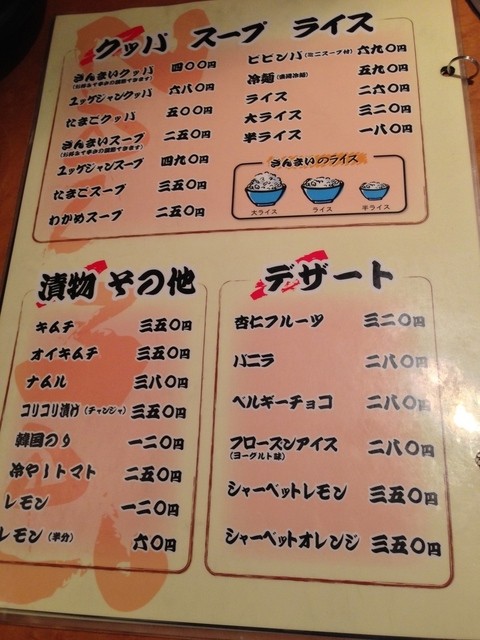 クッパ スープ ライス
さんまいクッパ 四〇〇円
ユッゲジャンクッパ 六八〇円
たまごクッパ 五〇〇円
さんまいスープ 二五〇円
ユッゲジャンスープ 四九〇円
たまごスープ 三五〇円
わかめスープ 二五〇円
ビビンバ(ミニスープ付) 六九〇円
冷麺 五九〇円
ライス 二六〇円
大ライス 三二〇円
半ライス 一八〇円
さんまいのライス
大ライス ライス 半ライス
漬物 その他
キムチ 三五〇円
オイキムチ 三五〇円
ナムル 三八〇円
コリコリ漬け(チャンジャ) 三五〇円
韓国のり 一二〇円
冷やしトマト 二五〇円
レモン 一二〇円
レモン(半分) 六〇円
デザート
杏仁フルーツ 三二〇円
バニラ 二八〇円
ベルギーチョコ 二八〇円
フローズンアイス 二八〇円
(ヨーグルト味)
シャーベットレモン 三五〇円
シャーベットオレンジ 三五〇円